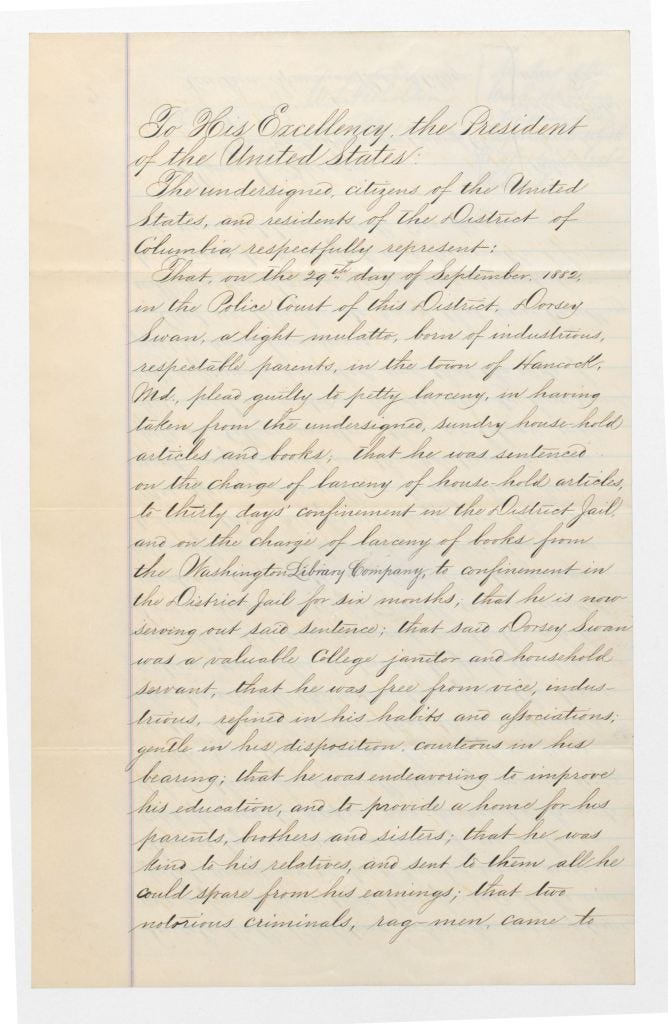 To His Excellency, the President
of the United States:
The undersigned, citizens of the United
States, and residents of the District of
Columbia, respectfully represent:
That, on the 29th day of September, 1882,
in the Police Court of this District, Dorsey
Swan, a light mulatto, born of industrious,
respectable parents, in the town of Hancock,
Md., plead guilty to petty larceny, in having
taken from the undersigned, sundry house-hold
articles and books; that he was sentenced
on the charge of larceny of house-hold articles,
to thirty days' confinement in the District Jail,
and on the charge of larceny of books from
the Washington Library Company, to confinement in
the District Jail for six months; that he is now
serving out said sentence; that said Dorsey Swan
was a valuable College janitor and household
servant, that he was free from vice, indus-
trious, refined in his habits and associations;
gentle in his disposition, courteous in his
bearing; that he was endeavoring to improve
his education, and to provide a home for his
parents, brothers and sisters; that he was
kind to his relatives, and sent to them all he
could spare from his earnings; that two
notorious criminals, rag-men, came to